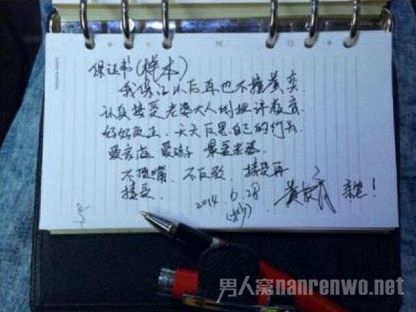 保证书(样本)
我保证以后再也不撞黄奕
认真接受老婆大人的批评教育
好好改正，天天反思自己的行为
爱家庭 爱 最爱老婆
不顶嘴，不反驳，接受再
接受
2014 6.28
黄毅清 亲笔！
男人窝nanrenwo.net